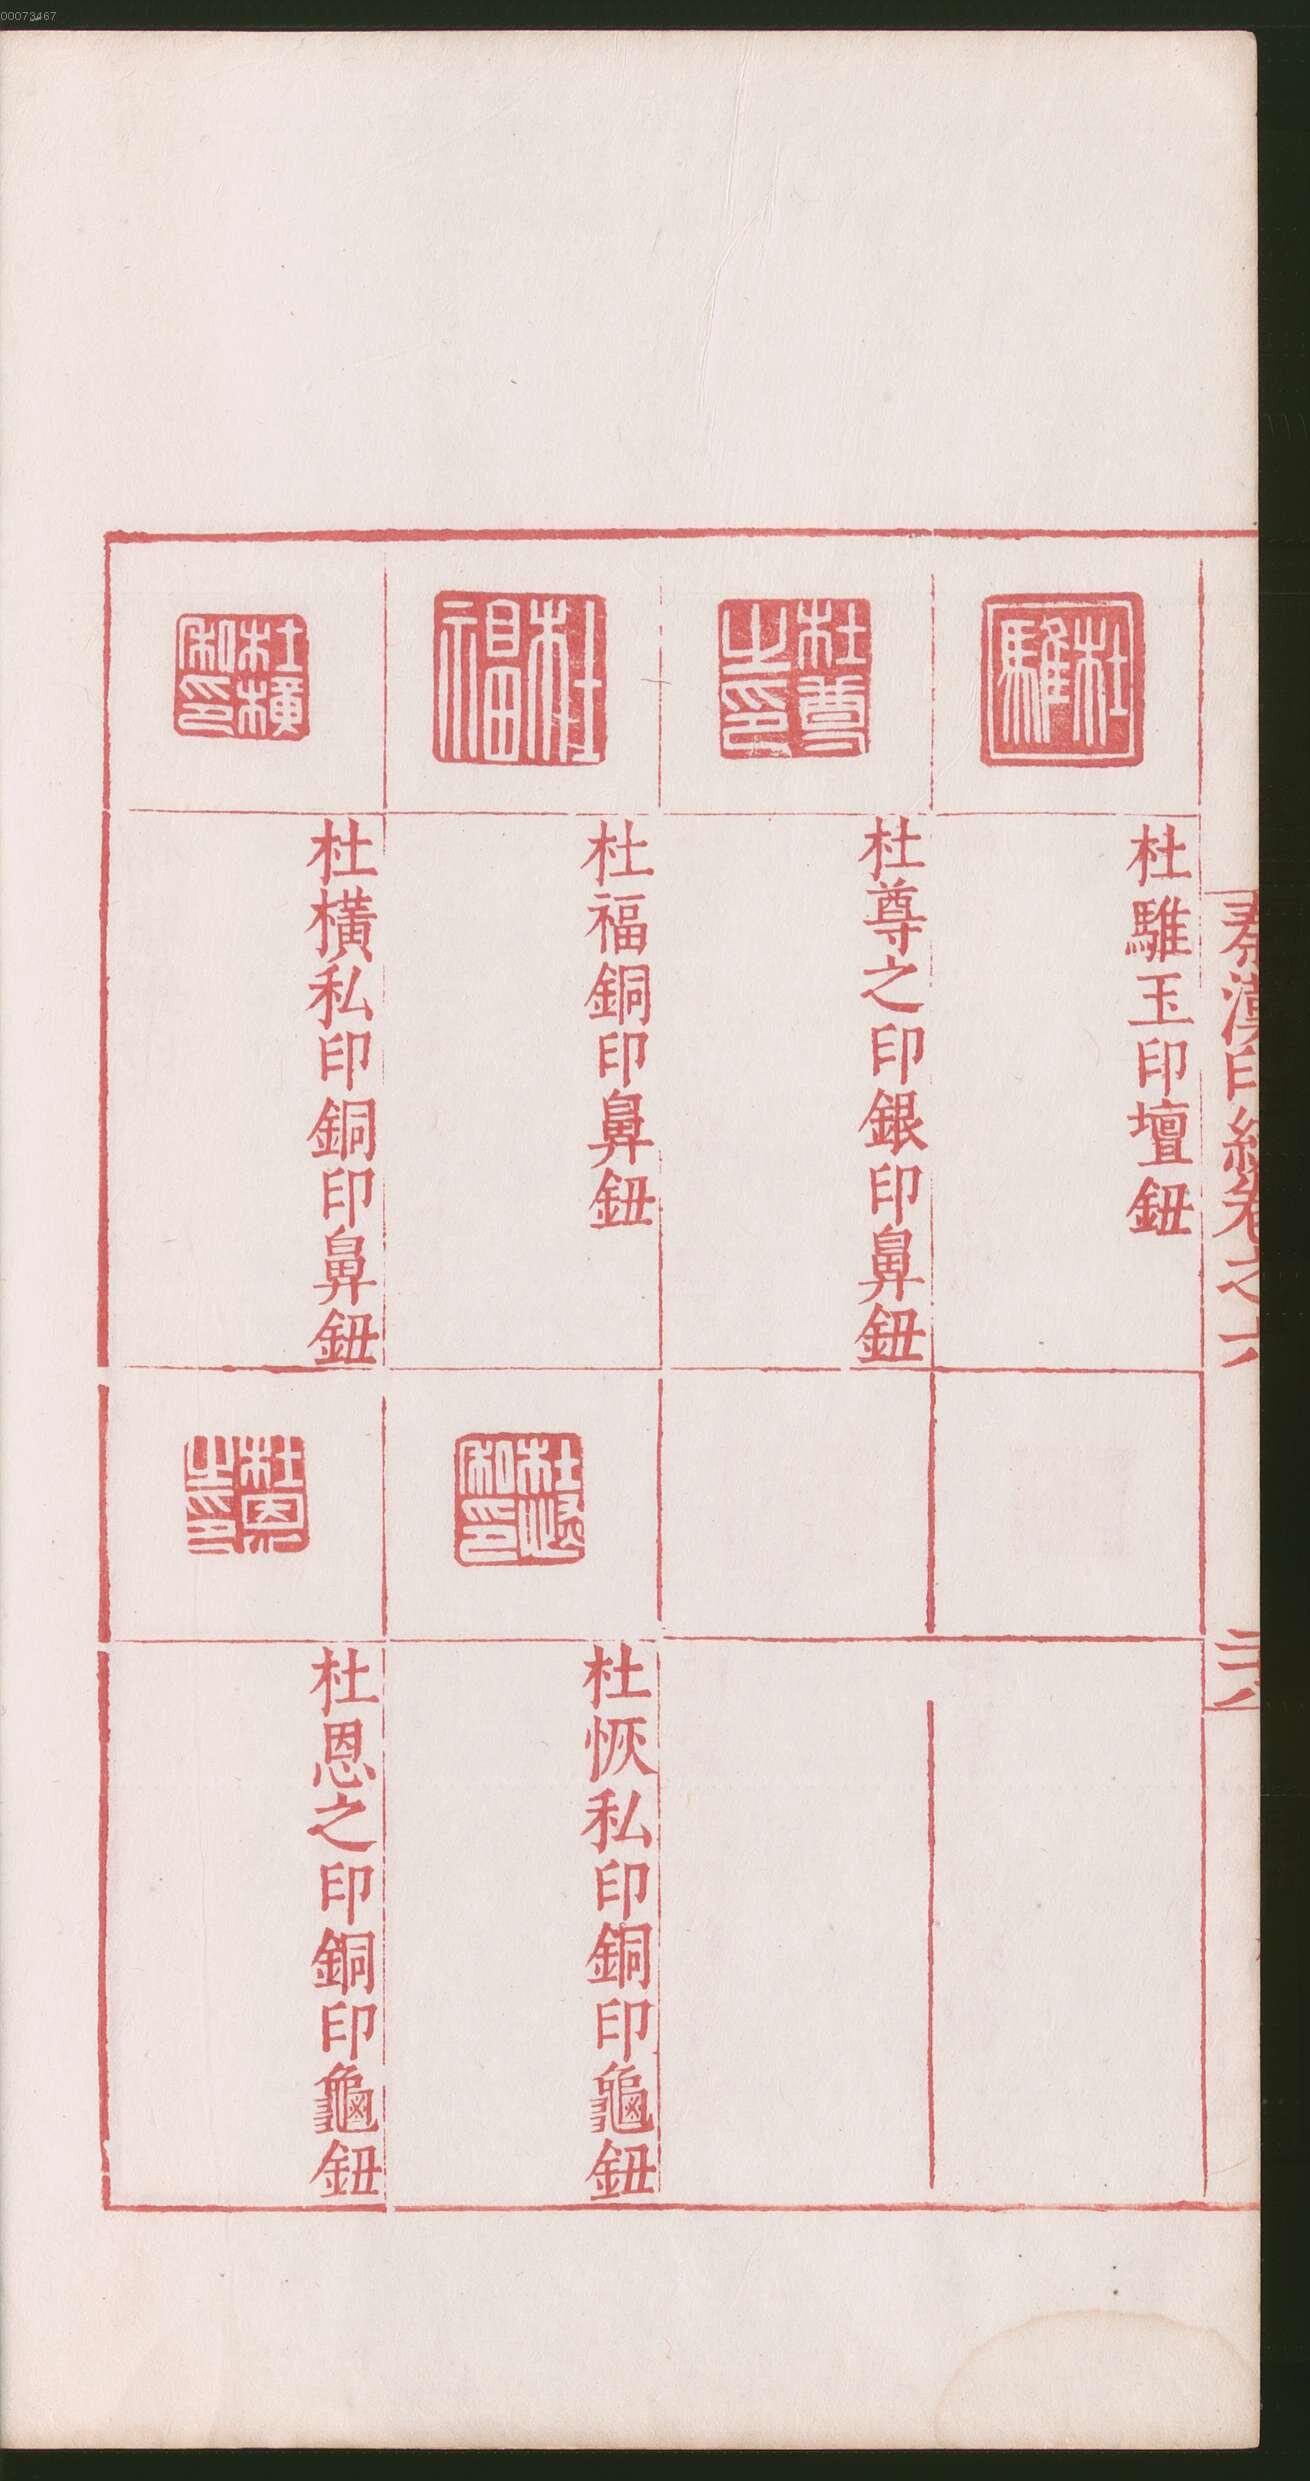 00073467
秦漢印統卷之六
二十八
杜騅
杜騅玉印壇鈕
杜尊之印
杜尊之印銀印鼻鈕
杜福
杜福銅印鼻鈕
杜橫私印
杜橫私印銅印鼻鈕
杜恢私印
杜恢私印銅印龜鈕
杜恩之印
杜恩之印銅印龜鈕